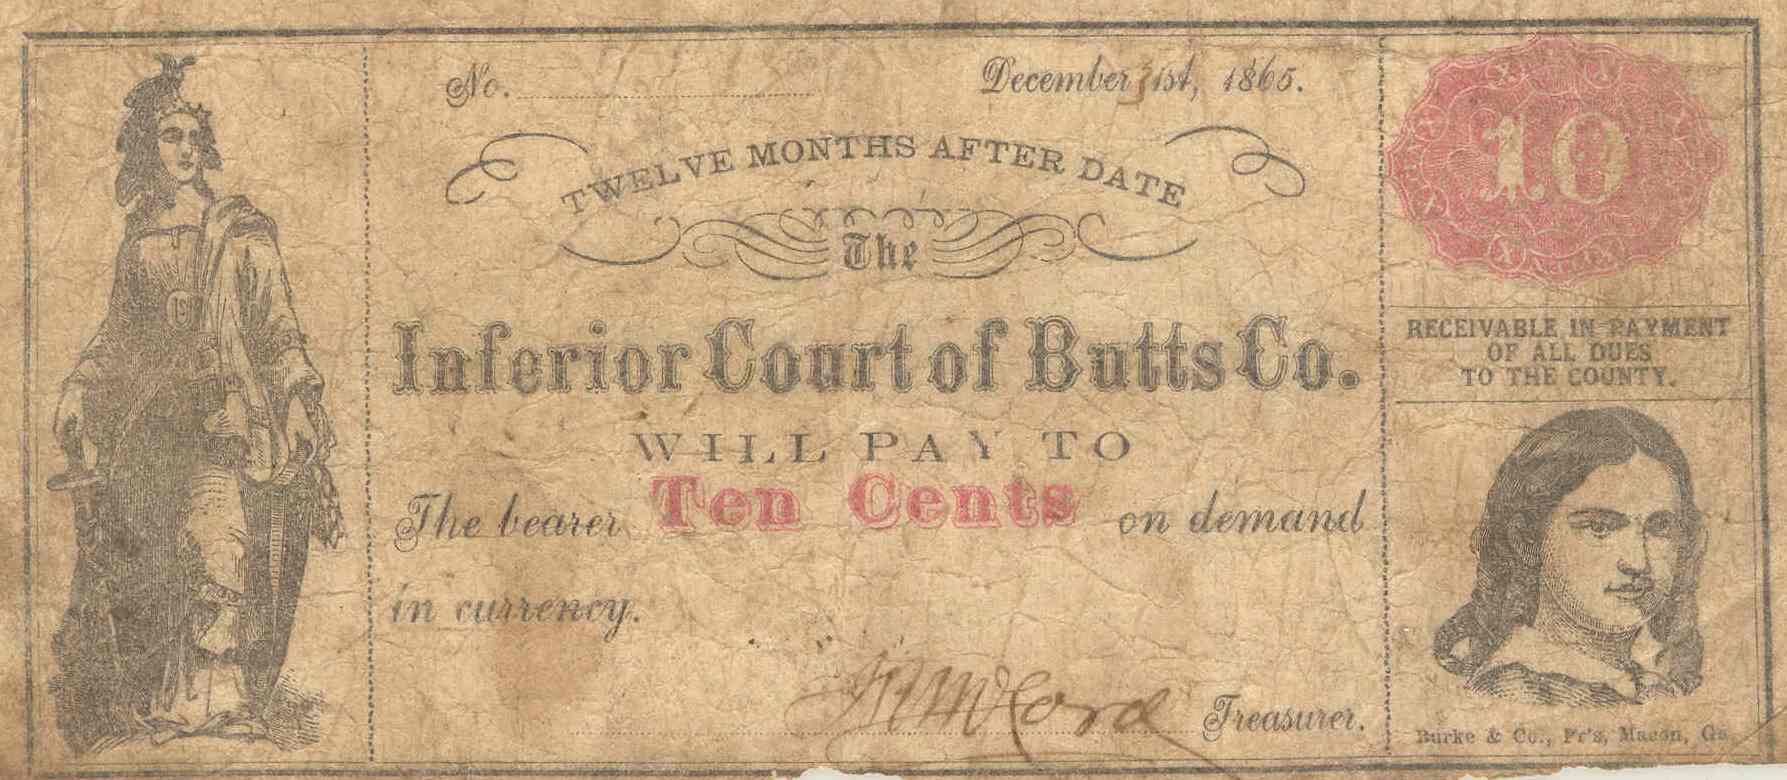 No.
December 31st, 1865.
TWELVE MONTHS AFTER DATE
The
Inferior Court of Butts Co.
WILL PAY TO
The bearer Ten Cents on demand
in currency.
Treasurer.
10
RECEIVABLE IN PAYMENT
OF ALL DUES
TO THE COUNTY.
Burke & Co., Pr's, Macon, Ga